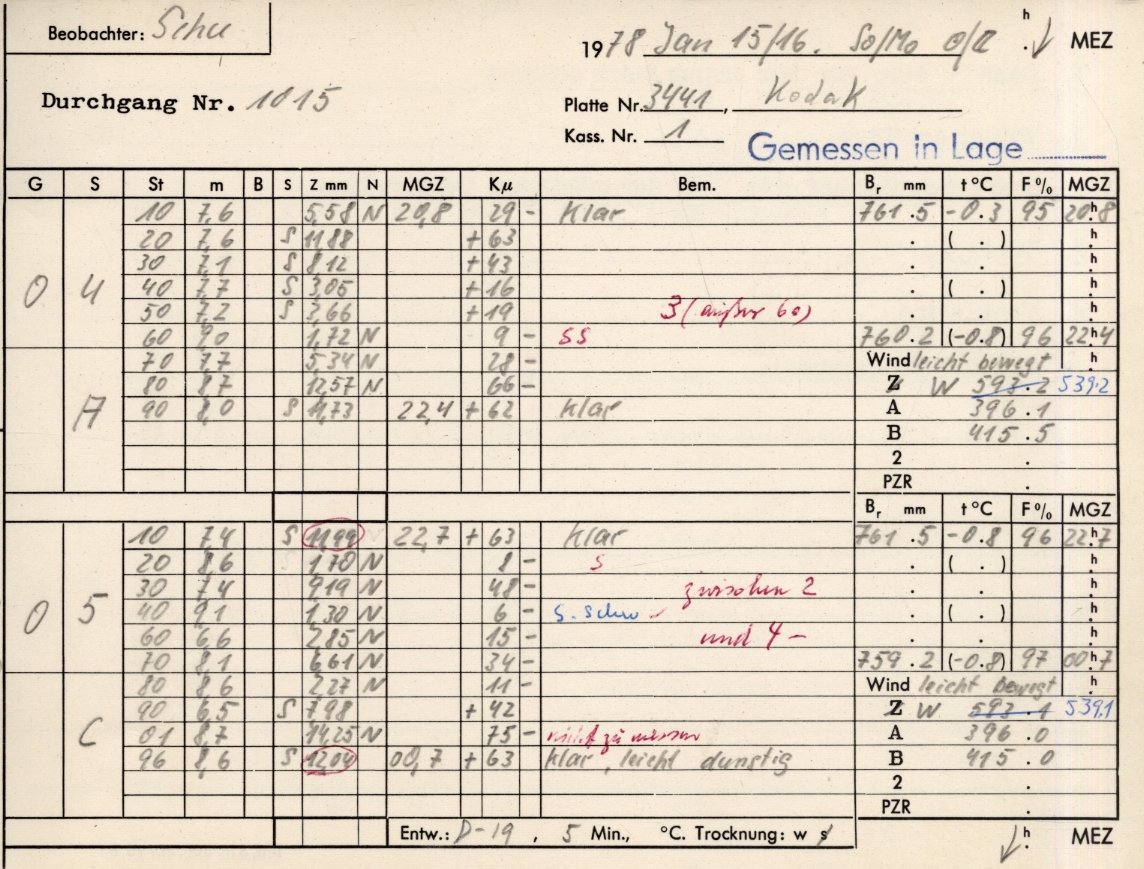 Beobachter: Schu
1978 Jan 15/16. So/Mo h MEZ
Durchgang Nr. 1015
Platte Nr. 3441, Kodak
Kass. Nr. 1
Gemessen in Lage
G S St m B S Z mm N MGZ Kμ Bem. Br mm t °C F % MGZ
10 7,6 5,58 N 20,8 29 - Klar 761.5 -0.3 95 20h8
20 7,6 S 11,88 + 63 ( . ) h
30 7,1 S 8,12 + 43 . . h
O 4 40 7,7 S 3,05 + 16 ( . ) h
50 7,2 S 3,66 + 19 3 (außer 60) . . h
60 9,0 1,72 N 9 - SS 760.2 (-0.8) 96 22h4
70 7,7 5,34 N 28 - Wind leicht bewegt h
80 8,7 12,57 N 66 - Z W 593.2 539.2
A 90 8,0 S 11,73 22,4 + 62 Klar A 396.1
B 415.5
2 .
PZR .
Br mm t °C F % MGZ
10 7,4 S 11,99 22,7 + 63 Klar 761.5 -0.8 96 22h7
20 8,6 1,70 N 8 - S . ( . ) h
30 7,4 9,19 N 48 - zwischen 2 . . h
O 5 40 9,1 1,30 N 6 - s. schw . ( . ) h
60 6,6 2,85 N 15 - und 4 - . . h
70 8,1 6,61 N 34 - 759.2 (-0.8) 97 00h7
80 8,6 2,27 N 11 - Wind leicht bewegt h
90 6,5 S 7,98 + 42 Z W 593.1 539.1
C 01 8,7 14,25 N 75 - nicht zu messen A 396.0
96 8,6 S 12,04 00,7 + 63 klar, leicht dunstig B 415.0
2 .
PZR .
Entw.: D-19, 5 Min., °C. Trocknung: w s
h MEZ